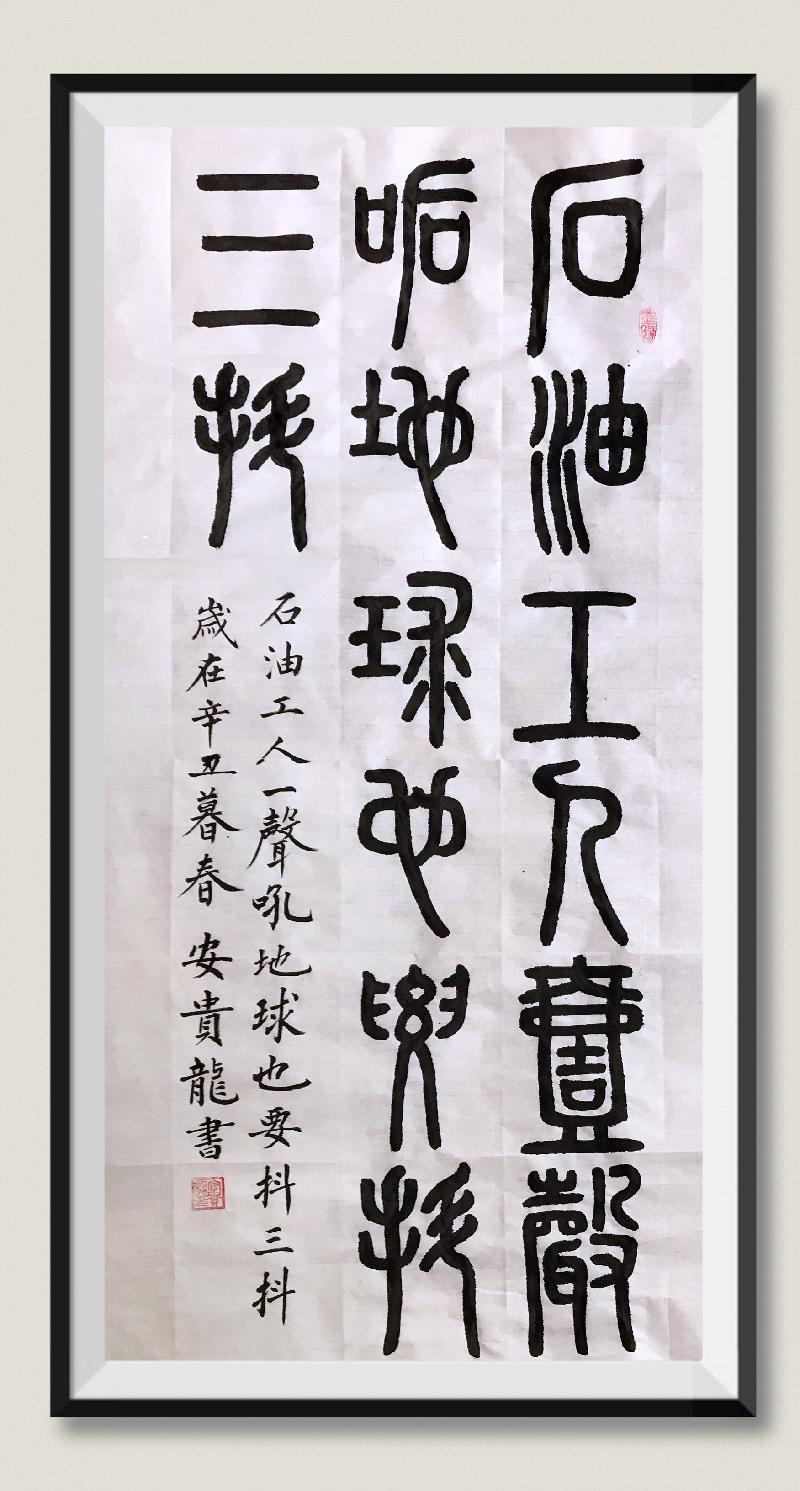 石油工人壹聲
吼地球也要抖
三抖
石油工人一聲吼地球也要抖三抖
歲在辛丑暮春安貴龍書